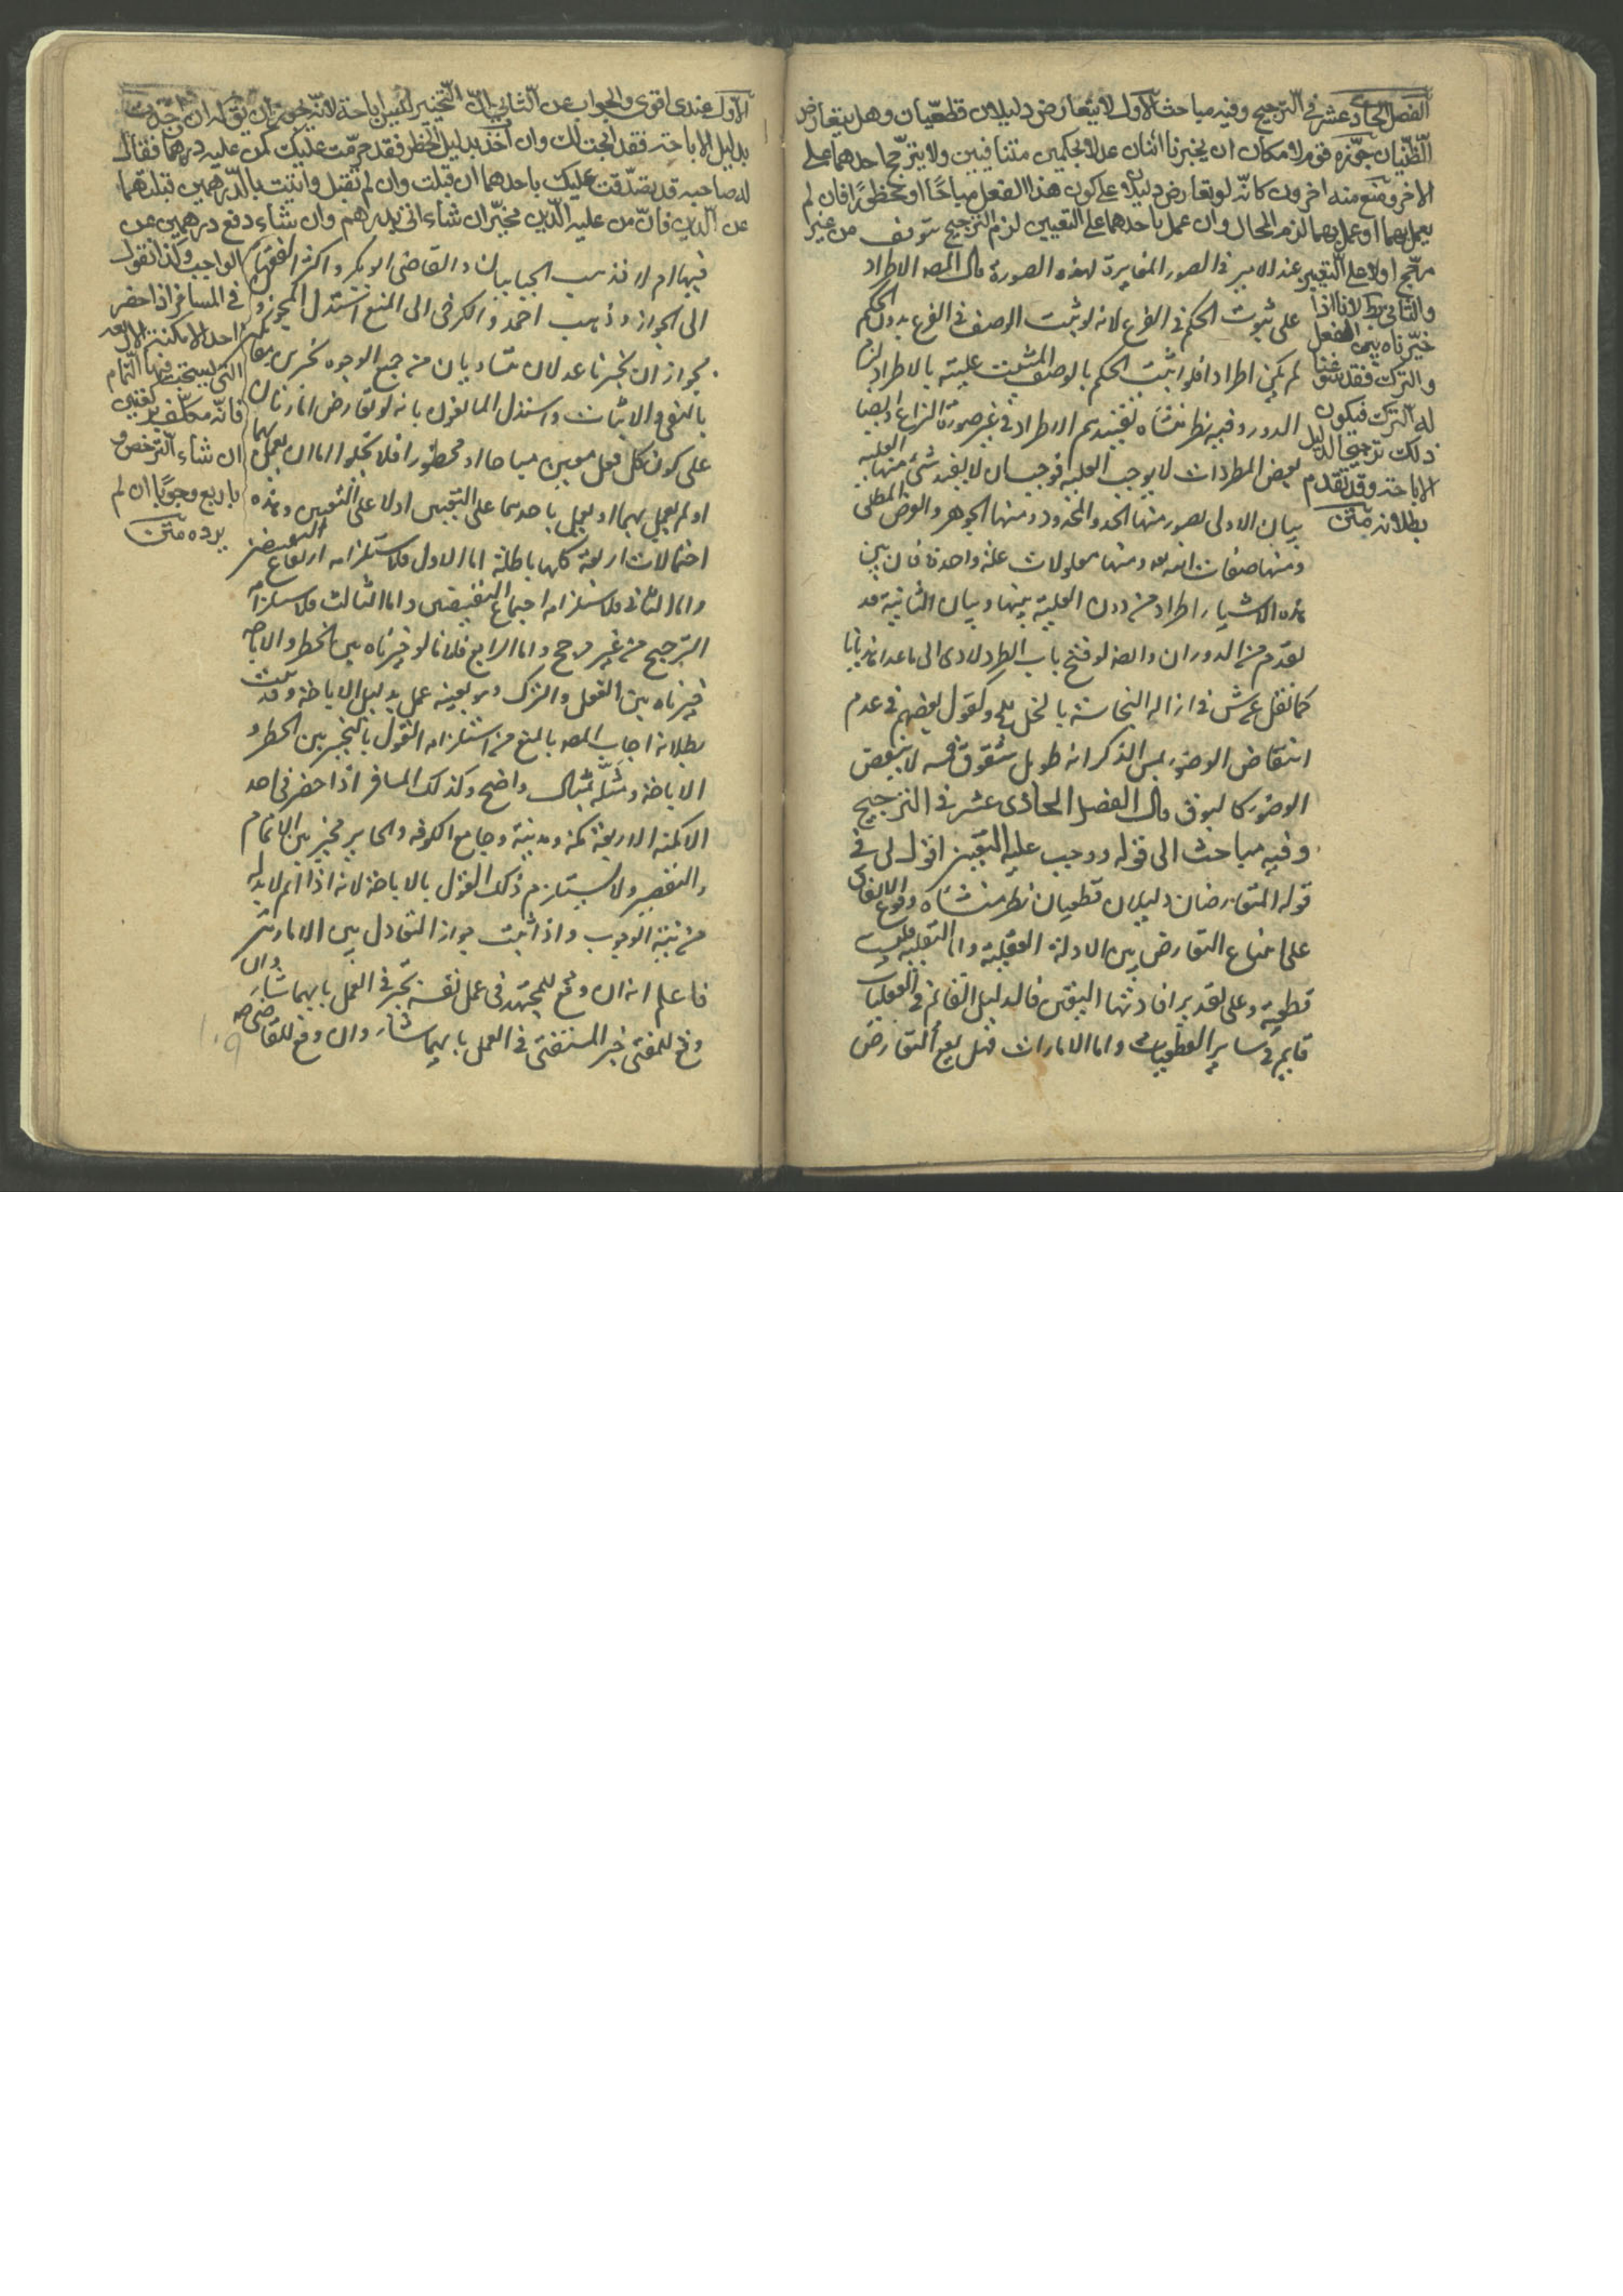 الفصل الحادي عشر في الترجيح وفيه مباحث الاول لا يتعارض دليلان قطعيان وهل يتعارض
الظنيان جوزه قوم لامكان ان يخبرنا اثنان عدلان بحكمين متنافيين ولا يترجح احدهما على
الاخر ومنع منه اخرون كانه لو تعارض دليلان على كون هذا الفعل مباحًا او محظورًا فان لم
يعمل بهما او عمل بهما لزم المحال وان عمل باحدهما على التعيين لزم الترجيح من غير
مرجح اولا على التعيين
والثاني بط لانا اذا
خيرناه بين الفعل
والترك فقد سوغنا
له الترك فيكون
ذلك ترجيحا لدليل
الاباحة وقد تقدم
بطلانه متن
عند الامر في الصور المغايرة لهذه الصورة قال المصه الاطراد
على ثبوت الحكم في الفرع لانه لو ثبت الوصف في الفرع بدون الحكم
لم يكن اطراد افلو اثبت الحكم بالوصف المثبت عليته بالاطراد لزم
الدور وفيه نظر منشاه تفسيرهم الاطراد في غير صورة النزاع وايضا
بعض المطردات لا يوجب العلية فوجب ان لا يفيد شئ منها العلية
بيان الاولى بصور منها الحد والمحدود ومنها الجوهر والعرض المطلق
ومنها صفات الله ومنها معلولات علة واحدة فان بين
هذه الاشياء اطراد من دون العلية بينها وبيان الثانية قد
تقدم من الدوران وايضا لو فتح باب الطرد لادى الى
كما نقل عن ش في ازالة النجاسة بالخل وكقول بعضهم في عدم
انتقاض الوضوء بمس الذكر انه طويل مشقوق فمسه لا ينقض
الوضوء كالبوق قال الفصل الحادى عشر في الترجيح
وفيه مباحث الى قوله ووجب عليه التعيين اقول لى في
قوله المتعارضان دليلان قطعيان نظر منشاه وقوع الاتفاق
على امتناع التعارض بين الادلة العقلية واما النقلية فليست
قطعية وعلى تقدير افادتها اليقين فالدليل القائم في العقليات
قايم في ساير القطعيات واما الامارات فهل يقع التعارض
الاول عندى اقوى والجواب عن الثاني ان التخيير ليس اباحة لانه يجوز ان يقول له ان اخذت
بدليل الاباحة فقد ابحت لك وان اخذت بدليل الحظر فقد حرمت عليك كمن عليه درهما فقال
له صاحبه قد تصدقت عليك باحدهما ان قبلت وان لم تقبل واتيت بالدرهمين قبلتهما
عن الدين فان من عليه الدين مخير ان شاء اتى بدرهم وان شاء دفع درهمين عن
الواجب وكذا نقول
في المسافر اذا حضر
احد الامكنة الاربعه
التي يستحب فيها التمام
فانه مكلف بركعتين
ان شاء الترخص و
باربع وجوبًا ان لم
يرده متن
فيها ام لا فذهب الجبائيان والقاضي ابو بكر واكثر الفقهاء
الى الجواز وذهب احمد والكرخى الى المنع استدل المجوزون
بجواز ان يخبرنا عدلان متساويان من جميع الوجوه
بالنفي والاثبات واستدل المانعون بانه لو تعارض امارتان
على كون كل فعل معين مباحا او محظورا فلا يخلوا اما ان يعمل بهما
او لم يعمل بهما او يعمل باحدهما على التعيين اولا على التعيين وهذه
احتمالات اربعة كلها باطلة اما الاول فلاستلزامه ارتفاع النقيضين
واما الثاني فلاستلزامه اجتماع النقيضين واما الثالث فلاستلزام
الترجيح من غير مرجح واما الرابع فلانا لو خيرناه بين الحظر والاباحة
خيرناه بين الفعل والترك وهو بعينه عمل بدليل الاباحة وقد ثبت
بطلانه اجاب المصه بالمنع من استلزامه القول بالتخيير بين الحظر و
الاباحة ومثله بمثال واضح وكذلك المسافر اذا حضر في احد
الامكنة الاربعة مكة ومدينة وجامع الكوفة والحاير مخير بين الاتمام
والتقصير ولا يستلزم ذلك القول بالاباحة لانه اذا اتم لا بد له
من نية الوجوب واذا ثبت جواز التعادل بين الامارتين
فاعلم انه ان وقع للمجتهد في عمل نفسه تخير في العمل بايهما شاء وان
وقع للمفتى خير المستفتى في العمل بايهما شاء وان وقع للقاضى